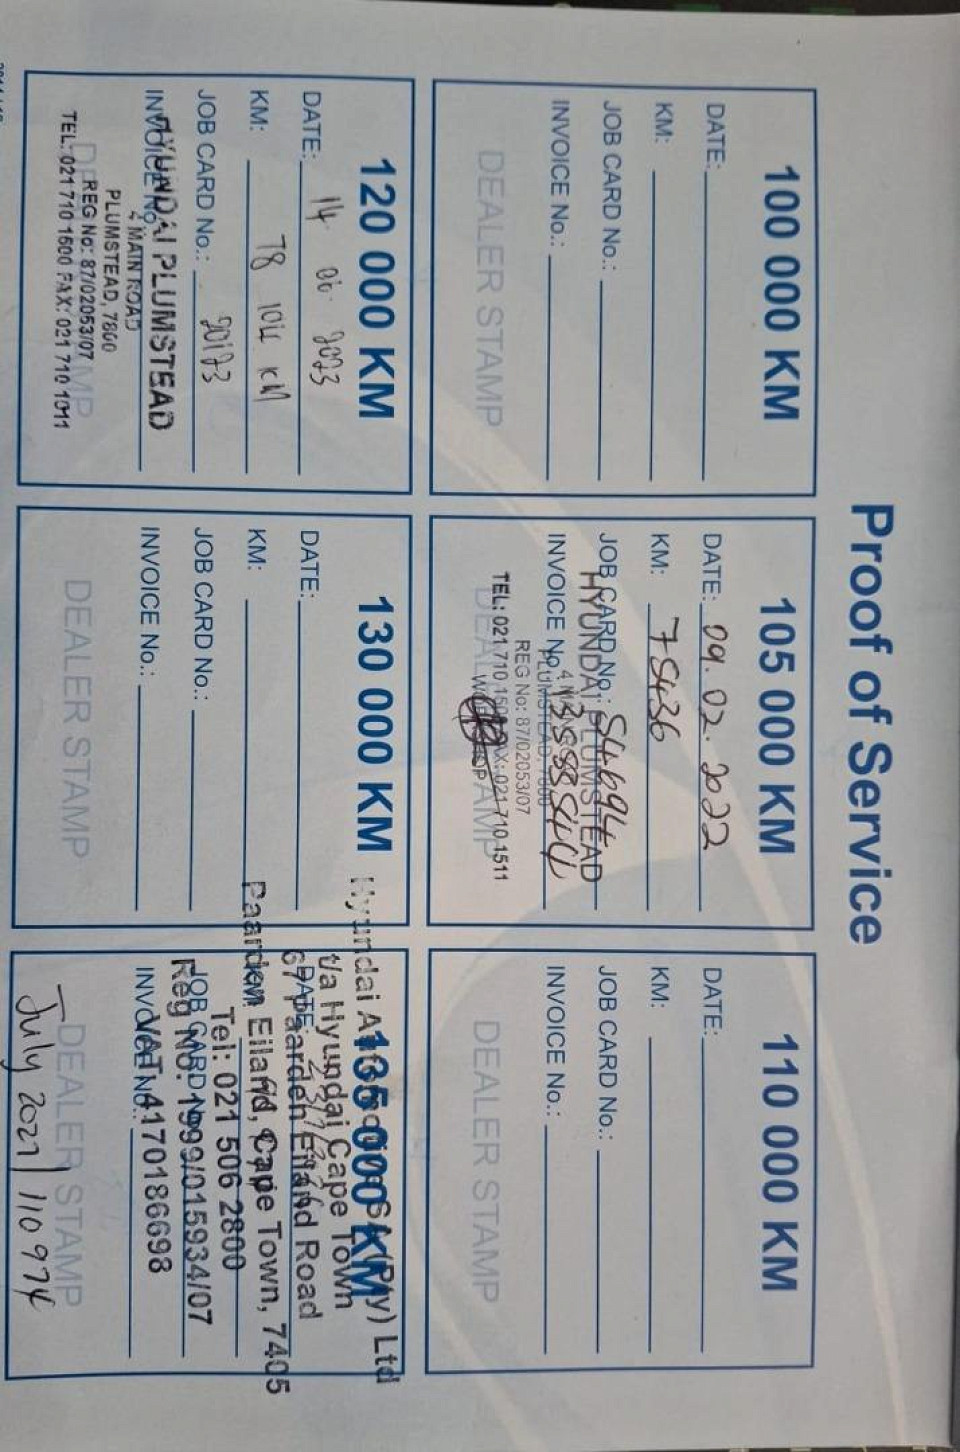 Proof of Service
100 000 KM
DATE:
KM:
JOB CARD No.:
INVOICE No.:
DEALER STAMP
105 000 KM
DATE: 09.02.2022
KM: 75436
JOB CARD No.: 54694
HYUNDAI PLUMSTEAD
INVOICE No.:
PLUMSTEAD, 7800
REG No: 87/02053/07
DEALER STAMP
TEL: 021 710 1511
110 000 KM
DATE:
KM:
JOB CARD No.:
INVOICE No.:
DEALER STAMP
120 000 KM
DATE: 14 06 2023
KM: 78 104 KM
JOB CARD No.: 20173
HYUNDAI PLUMSTEAD
INVOICE No.
4 MAIN ROAD
PLUMSTEAD, 7800
REG No: 87/02053/07
TEL: 021 710 1500 FAX: 021 710 1011
130 000 KM
DATE:
KM:
JOB CARD No.:
INVOICE No.:
DEALER STAMP
135 000 KM
Hyundai (Pty) Ltd
t/a Hyundai Cape Town
DATE:
67 Paarden Eiland Road
KM:
Paarden Eiland, Cape Town, 7405
Tel: 021 506 2800
JOB CARD No.:
Reg No. 1999/015934/07
INVOICE No.:
VAT 4170186698
DEALER STAMP
July 2021 | 110 974